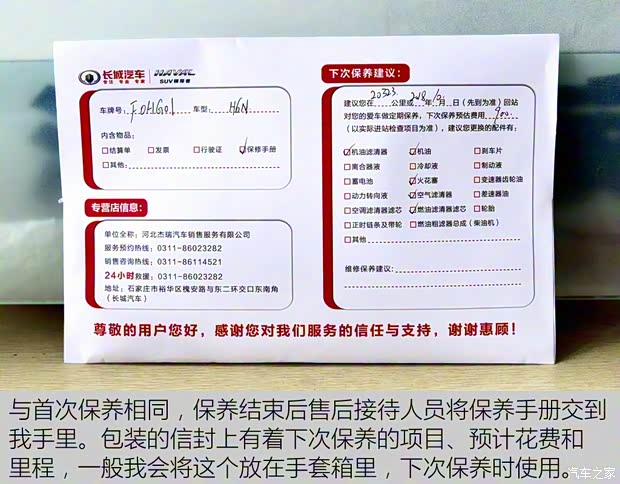 长城汽车
专注 专业 专家
HAVAL
SUV领导者
车牌号: FOHG01 车型: H6N
内含物品:
□结算单 □发票 □行驶证 ☑保修手册
□其他:
专营店信息:
单位全称: 河北杰瑞汽车销售服务有限公司
服务预约热线: 0311-86023282
销售咨询热线: 0311-86114521
24小时救援: 0311-86023282
地址: 石家庄市裕华区槐安路与东二环交口东南角
(长城汽车)
下次保养建议:
建议您在20323公里或 年 月 日(先到为准)回站
对您的爱车做定期保养,下次保养预估费用 900
(以实际进站检查项目为准),建议您更换的配件有:
☑机油滤清器 ☑机油 □刹车片
□离合器液 □冷却液 □制动液
□蓄电池 ☑火花塞 □变速器齿轮油
□动力转向液 ☑空气滤清器 □差速器油
□空调滤清器滤芯 ☑燃油滤清器滤芯 □轮胎
□正时链条及带轮 □燃油粗滤器总成(柴油机)
□其他
维修保养建议:
尊敬的用户您好,感谢您对我们服务的信任与支持,谢谢惠顾!
与首次保养相同,保养结束后售后接待人员将保养手册交到
我手里。包装的信封上有着下次保养的项目、预计花费和
里程,一般我会将这个放在手套箱里,下次保养时使用。
汽车之家